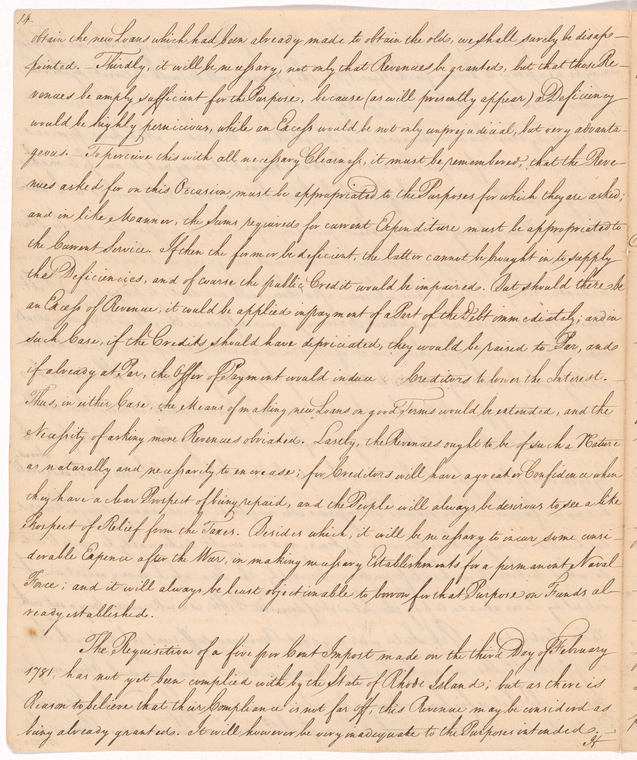 14.
obtain the new Loans which had been already made to obtain the old, we shall surely be disap-
pointed. Thirdly, it will be necessary, not only that Revenues be granted, but that those Re-
venues be amply sufficient for the Purpose, because (as will presently appear) a Deficiency
would be highly pernicious, while an Excess would be not only unprejudicial, but very advanta-
geous. — To perceive this with all necessary Clearness, it must be remembered, that the Reve-
nues asked for on this Occasion, must be appropriated to the Purposes for which they are asked;
and in like Manner, the Sums required for current Expenditure must be appropriated to
the Current Service. If then the former be deficient, the latter cannot be brought in to supply
the Deficiencies, and of course the public Credit would be impaired. But should there be
an Excess of Revenue, it could be applied in payment of a Part of the Debt immediately; and in
such Case, if the Credits should have depreciated, they would be raised to Par, and
if already at Par, the Offer of Payment would induce Creditors to lower the Interest. —
Thus, in either Case, the Means of making new Loans on good Terms would be extended, and the
Necessity of asking more Revenues obviated. Lastly, the Revenues ought to be of such a Nature
as naturally and necessarily to encrease; for Creditors will have a greater Confidence when
they have a clear Prospect of being repaid, and the People will always be desirous to see a like
Prospect of Relief from the Taxes. Besides which, it will be necessary to incur some consi-
derable Expence after the War, in making necessary Establishments for a permanent Naval
Force; and it will always be least objectionable to borrow for that Purpose on Funds al-
ready established.
The Requisition of a five per Cent Impost made on the third Day of February
1781, has not yet been complied with by the State of Rhode Island; but as there is
Reason to believe that their Compliance is not far off, this Revenue may be considered as
being already granted. It will however be very inadequate to the Purposes intended. —
If